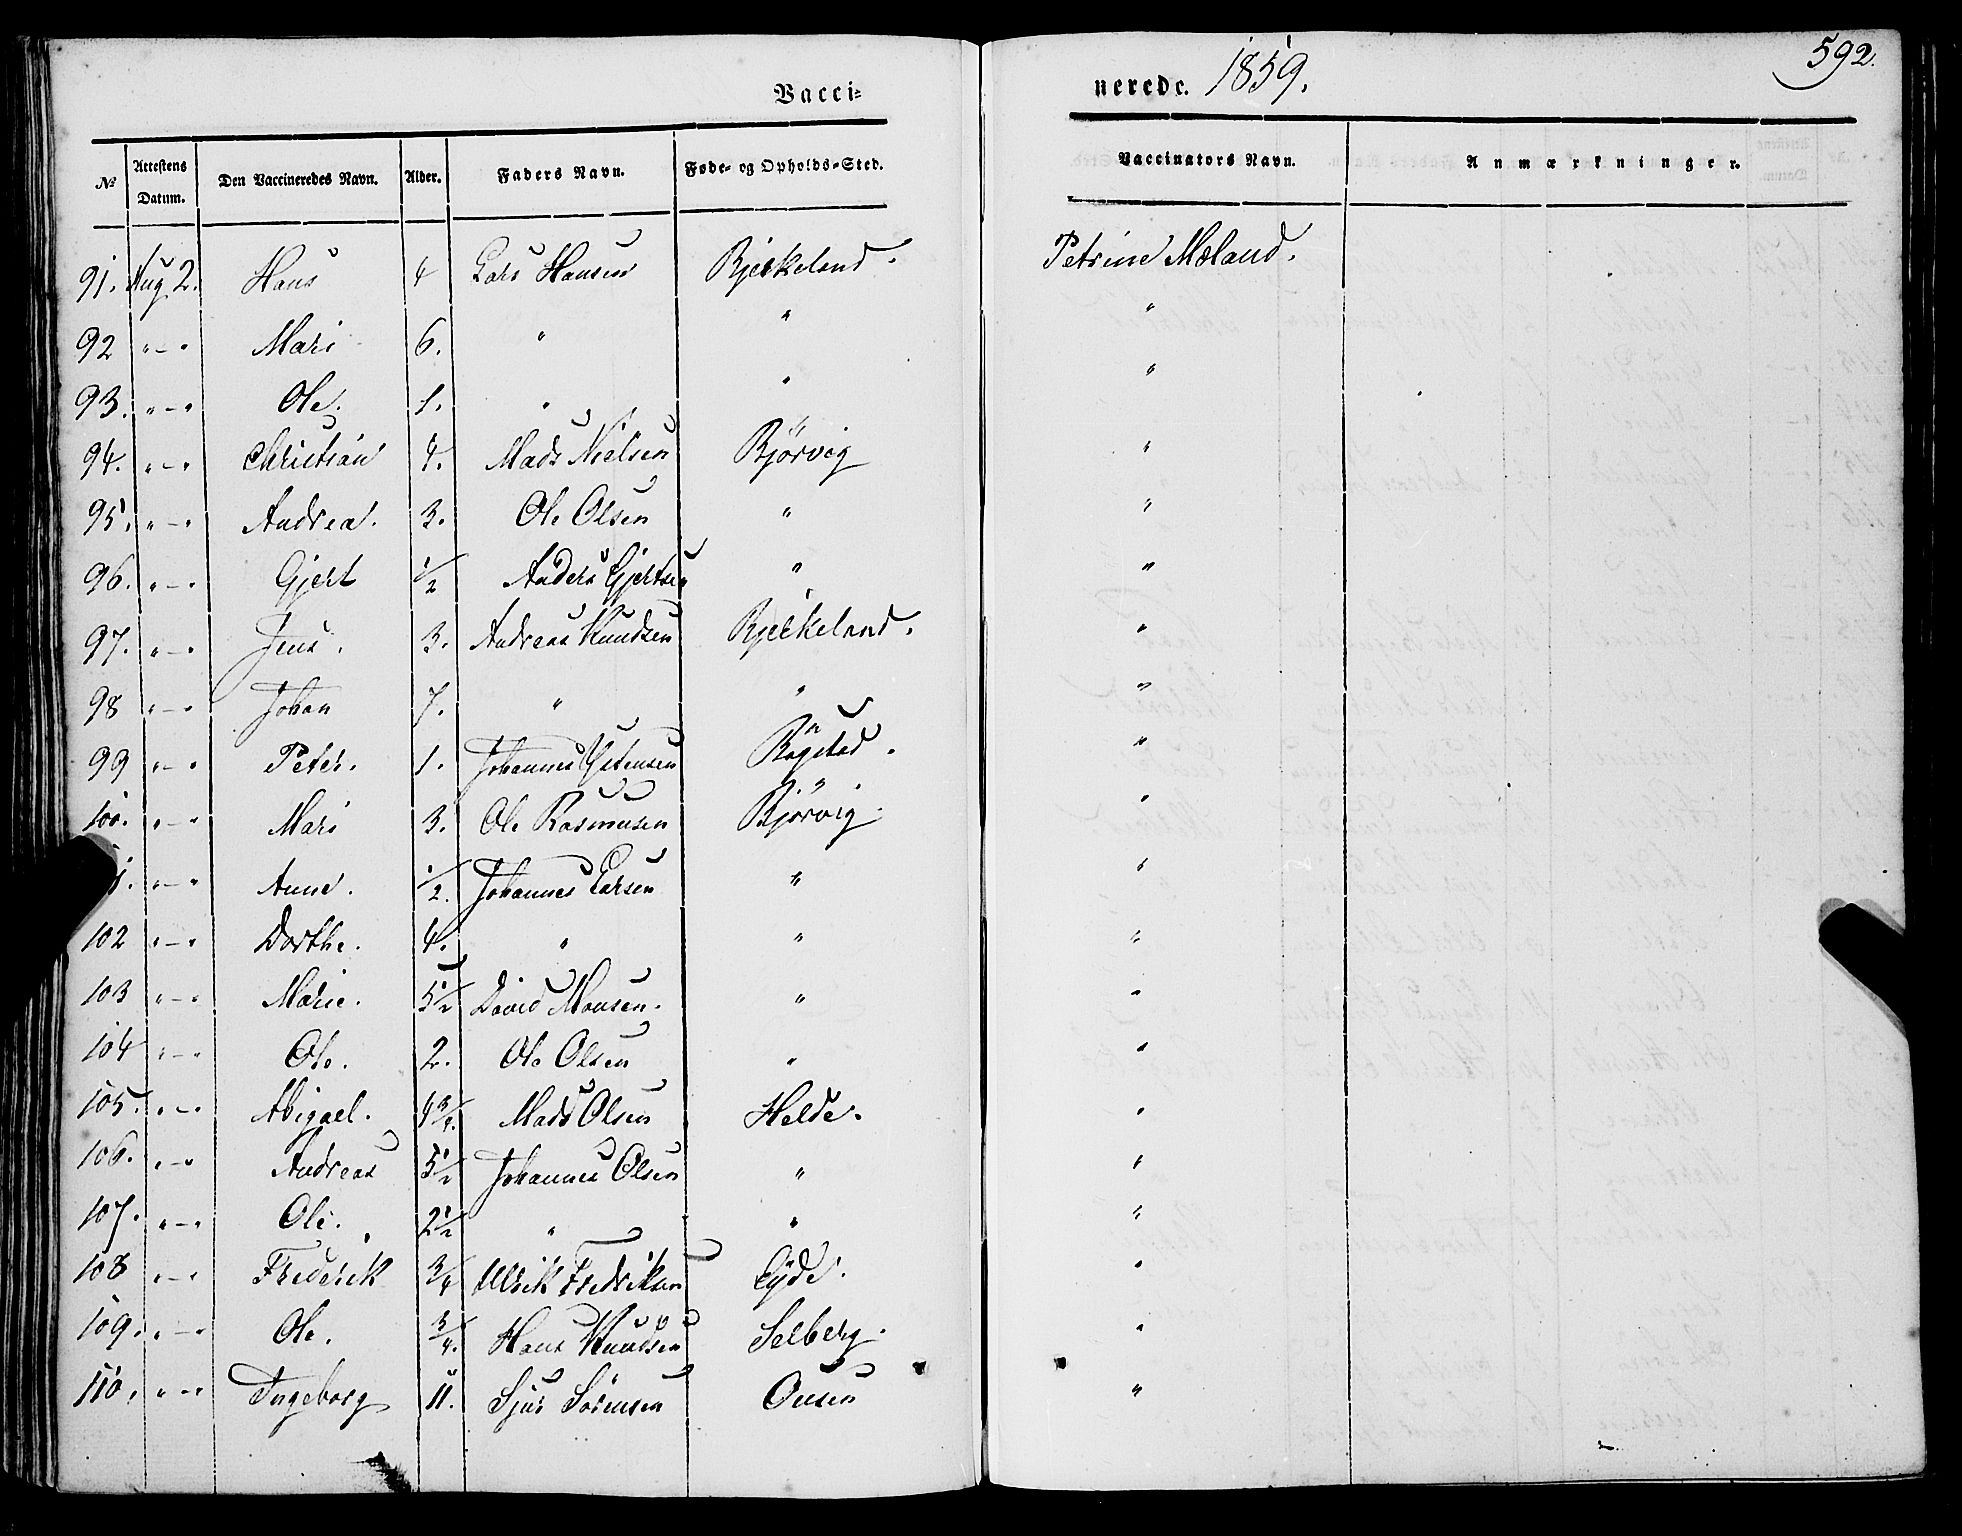 Vacci=
nerede. 1859.
592.
№ Attestens Datum. Den Vaccineredes Navn. Alder. Faders Navn. Føde- og Opholds-Sted. Vaccinators Navn. Anmærkninger.
91. Aug 2. Hans 4 Lars Hansen Bjerkeland. Petrine Mæland.
92 " - " Mari 6. " " "
93. " - " Ole. 1. " " "
94. " - " Christian 4. Mads Nielsen Bjørvig "
95. " - " Andrea. 3. Ole Olsen " "
96. " - " Gjert 1/2 Anders Gjertsen " "
97. " - " Jens. 3. Andreas Knudsen Bjerkeland. "
98 " - " Johan 7. " " "
99 " - " Peter. 1. Johannes Ystensen Bøgstad. "
100. " - " Mari 3. Ole Rasmusen Bjørvig. "
1. " - " Anne. 1/2. Johannes Larsen " "
102 " - " Dorthe. 4. " " "
103 " - " Marie. 5 1/2 David Monsen. " "
104 " - " Ole. 2. Ole Olsen " "
105. " - " Abigael. 4 3/4. Mads Olsen Helde. "
106. " - " Andreas 5 1/2 Johannes Olsen " "
107. " - " Ole. 2 1/2 " " "
108 " - " Frederik 3/4 Ulrik Fredriksen Eÿde. "
109. " - " Ole. 3/4. Hans Knudsen Selberg. "
110. " - " Ingeborg 11. Sjur Sörensen Onsen "